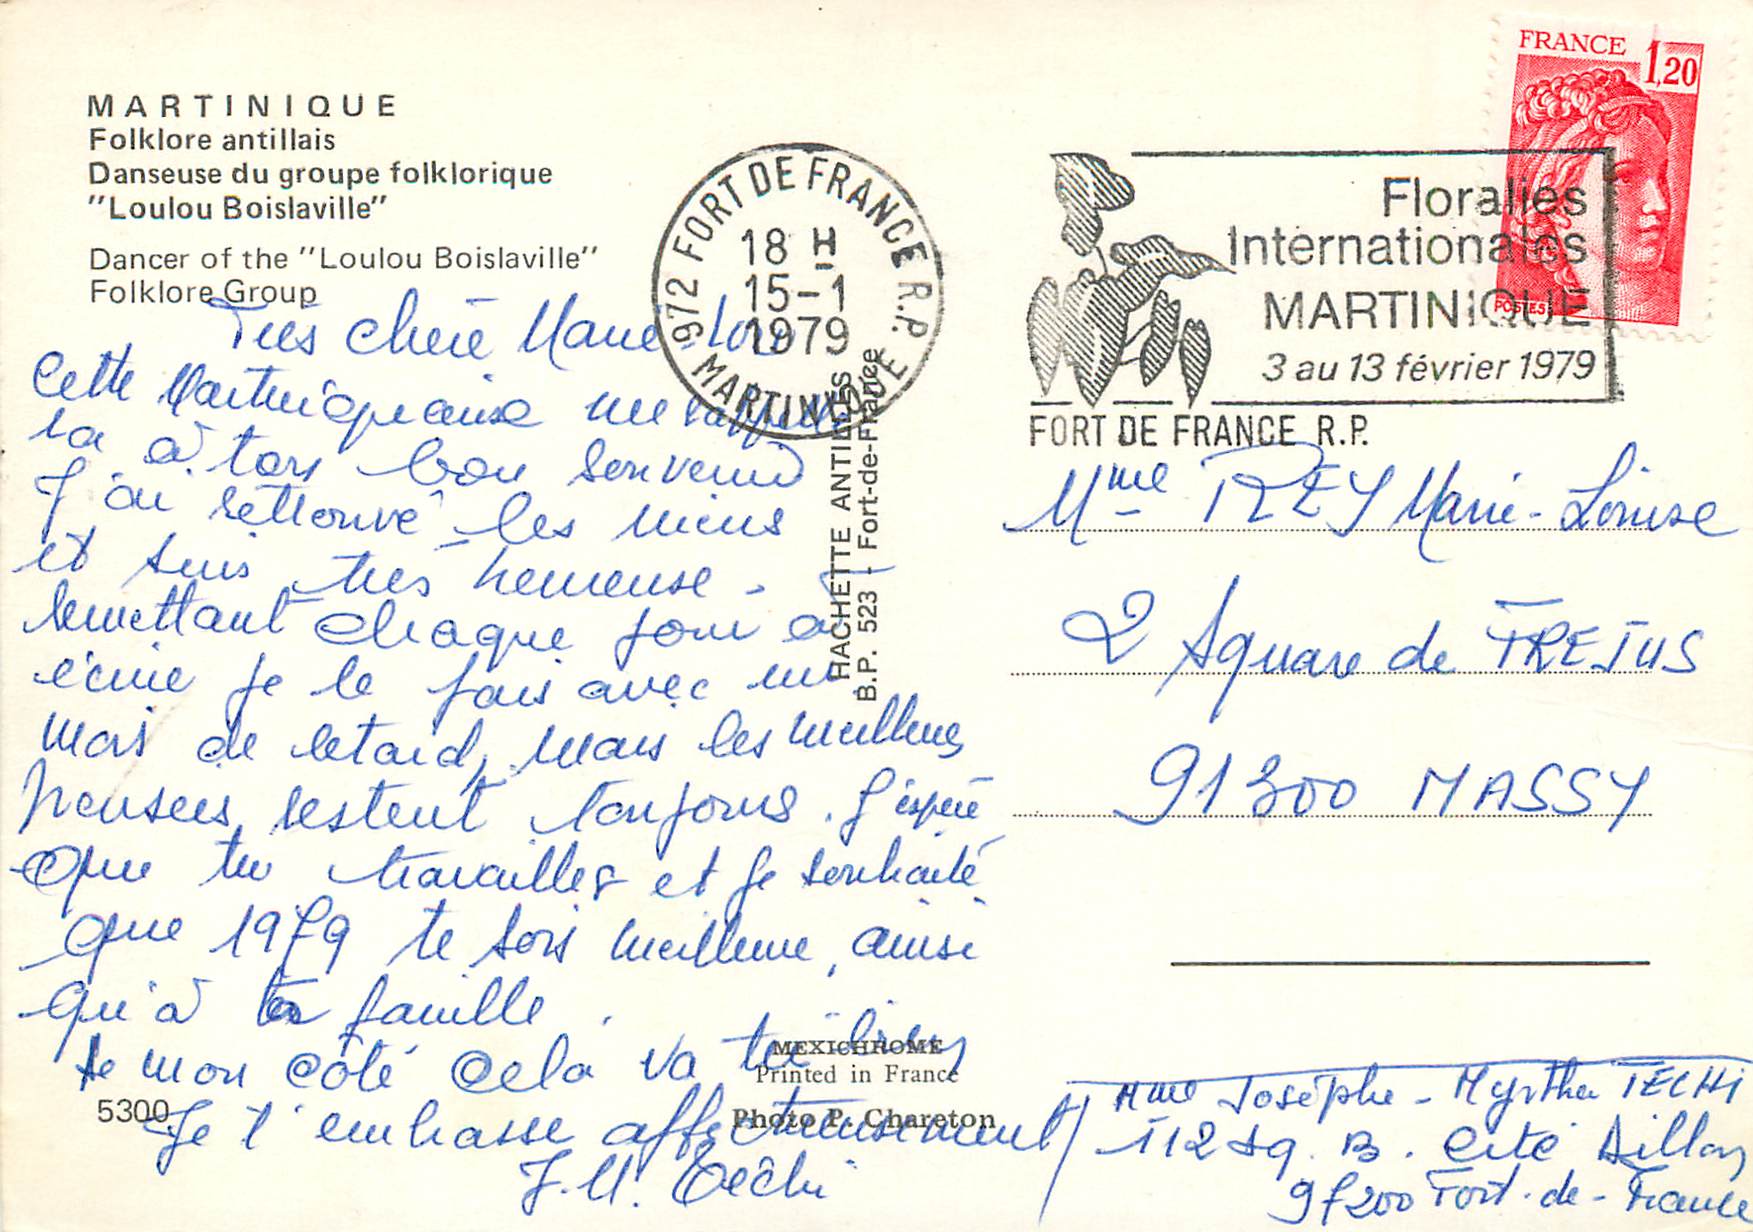 MARTINIQUE
Folklore antillais
Danseuse du groupe folklorique
"Loulou Boislaville"
Dancer of the "Loulou Boislaville"
Folklore Group
Très chère Marie-Lou
Cette Martiniquaise me rappelle
à bon souvenir
J'ai retrouvé les miens
et suis très heureuse -
Remettant chaque jour à
écrire je le fais avec un
mois de retard, mais les meilleures
pensées restent toujours. J'espère
que tu travailles et je souhaite
que 1979 te sois meilleure, ainsi
qu'à ta famille.
De mon côté cela va très bien
Je t'embrasse affectueusement
J.M. Téchi
5300
MEXICHROME
Printed in France
Photo P. Chareton
HACHETTE ANTILLES
B.P. 523 - Fort-de-France
972 FORT DE FRANCE R.P.
18 H
15-1
1979
MARTINIQUE
FRANCE 1,20
POSTES
Floralies
Internationales
MARTINIQUE
3 au 13 février 1979
FORT DE FRANCE R.P.
Mme REY Marie-Louise
2 Square de FREJUS
91300 MASSY
Mme Josèphe-Myrtha TECHI
112 Sq. B. Cité Dillon
97200 Fort-de-France